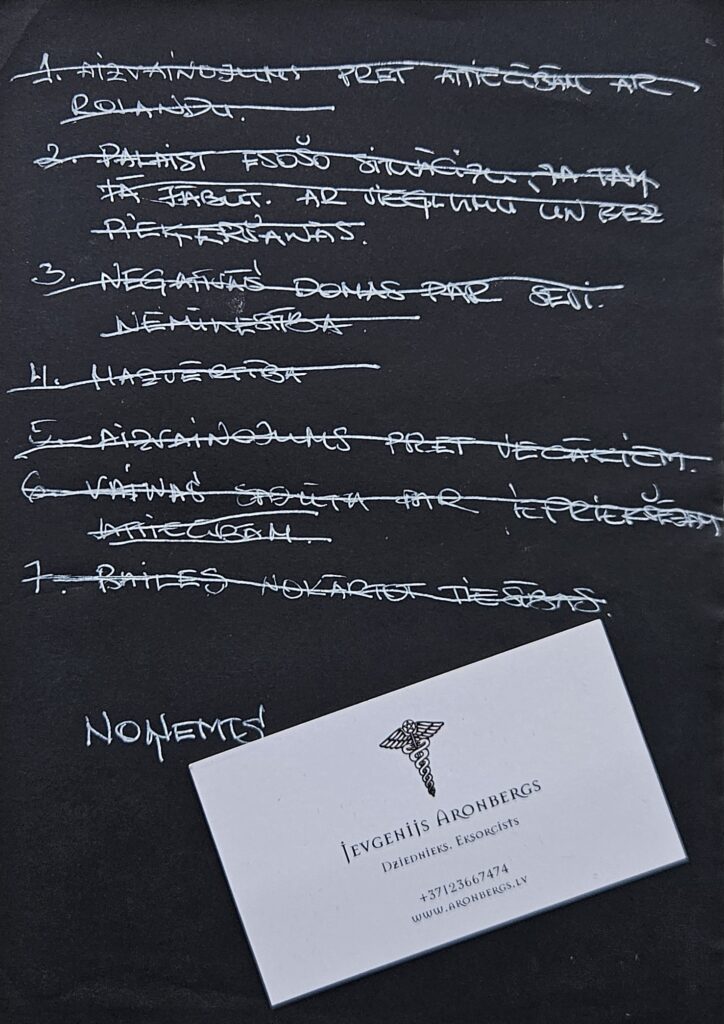 1. AIZVAINOJUMS PRET ATTIECĪBĀM AR
ROLANDU.
2. PALAIST ESOŠO SITUĀCIJU, JA TAM
TĀ JĀBŪT. AR VIEGLUMU UN BEZ
PIEĶERŠANĀS.
3. NEGATĪVĀS DOMAS PAR SEVI.
NEMĪLESTĪBA.
4. MAZVĒRTĪBA
5. AIZVAINOJUMS PRET VECĀKIEM.
6. VAINAS SAJŪTA PAR IEPRIEKŠĒJĀM
ATTIECĪBĀM.
7. BAILES NOKĀRTOT TIESĪBAS.
NOŅEMTS
Jevgenijs Aronbergs
Dziednieks, Eksorcists
+37123667474
www.aronbergs.lv